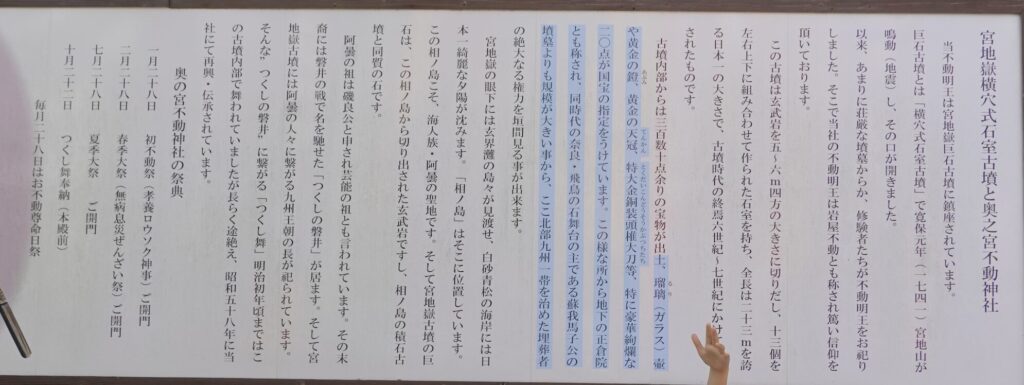 宮地嶽横穴式石室古墳と奥之宮不動神社
当不動明王は宮地嶽巨石古墳に鎮座されています。
巨石古墳とは「横穴式石室古墳」で寛保元年（一七四一）宮地山が
鳴動（地震）し、その口が開きました。
以来、あまりに荘厳な墳墓からか、修験者たちが不動明王をお祀り
しました。そこで当社の不動明王は岩屋不動とも称され篤い信仰を
頂いております。
この古墳は玄武岩を五～六ｍ四方の大きさに切りだし、十三個を
左右上下に組み合わせて作られた石室を持ち、全長は二十三ｍを誇
る日本一の大きさで、古墳時代の終焉六世紀～七世紀にかけ
されたものです。
古墳内部からは三百数十点余りの宝物が出土、瑠璃（ガラス）壺
や黄金の鐙、黄金の天冠、特大金銅装頭椎大刀等、特に豪華絢爛な
二〇点が国宝の指定をうけています。この様な所から地下の正倉院
とも称され、同時代の奈良・飛鳥の石舞台の主である蘇我馬子公の
墳墓よりも規模が大きい事から、ここ北部九州一帯を治めた埋葬者
の絶大なる権力を垣間見る事が出来ます。
宮地嶽の眼下には玄界灘の島々が見渡せ、白砂青松の海岸には日
本一綺麗な夕陽が沈みます。「相ノ島」はそこに位置しています。
この相ノ島こそ、海人族・阿曇の聖地です。そして宮地嶽古墳の巨
石は、この相ノ島から切り出された玄武岩ですし、相ノ島の積石古
墳と同質の石です。
阿曇の祖は磯良公と申され芸能の祖とも言われています。その末
裔には磐井の戦で名を馳せた「つくしの磐井」が居ます。そして宮
地嶽古墳には阿曇の人々に繋がる九州王朝の長が祀られています。
そんな"つくしの磐井"に繋がる「つくし舞」明治初年頃まではこ
の古墳内部で舞われていましたが長らく途絶え、昭和五十八年に当
社にて再興・伝承されています。
奥の宮不動神社の祭典
一月二十八日　初不動祭（孝養ロウソク神事）ご開門
二月二十八日　春季大祭（無病息災ぜんざい祭）ご開門
七月二十八日　夏季大祭　ご開門
十月二十二日　つくし舞奉納（本殿前）
毎月二十八日はお不動尊命日祭